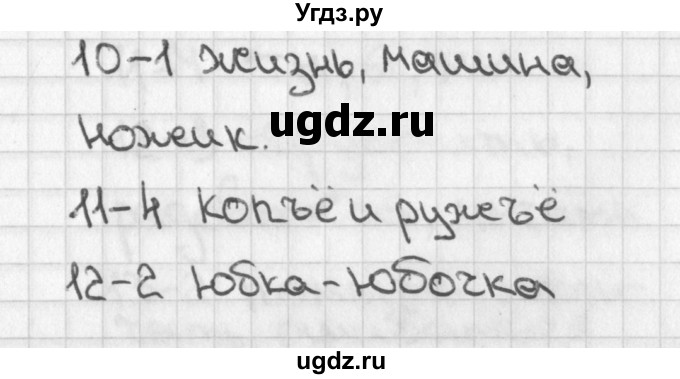 Угдз.ру
10-1 жизнь, машина,
ножик.
ugdz.ru
11-4 копъё и ружъё
12-2 Юбка-Юбочка
ugdz.ru